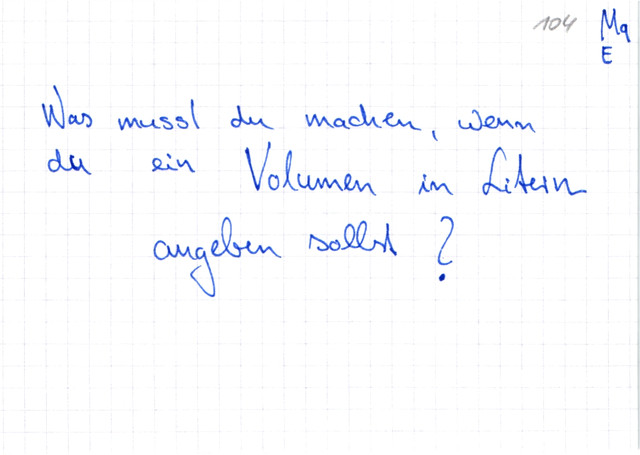 104 Mg
E
Was musst du machen, wenn
du ein Volumen in Litern
angeben sollst?